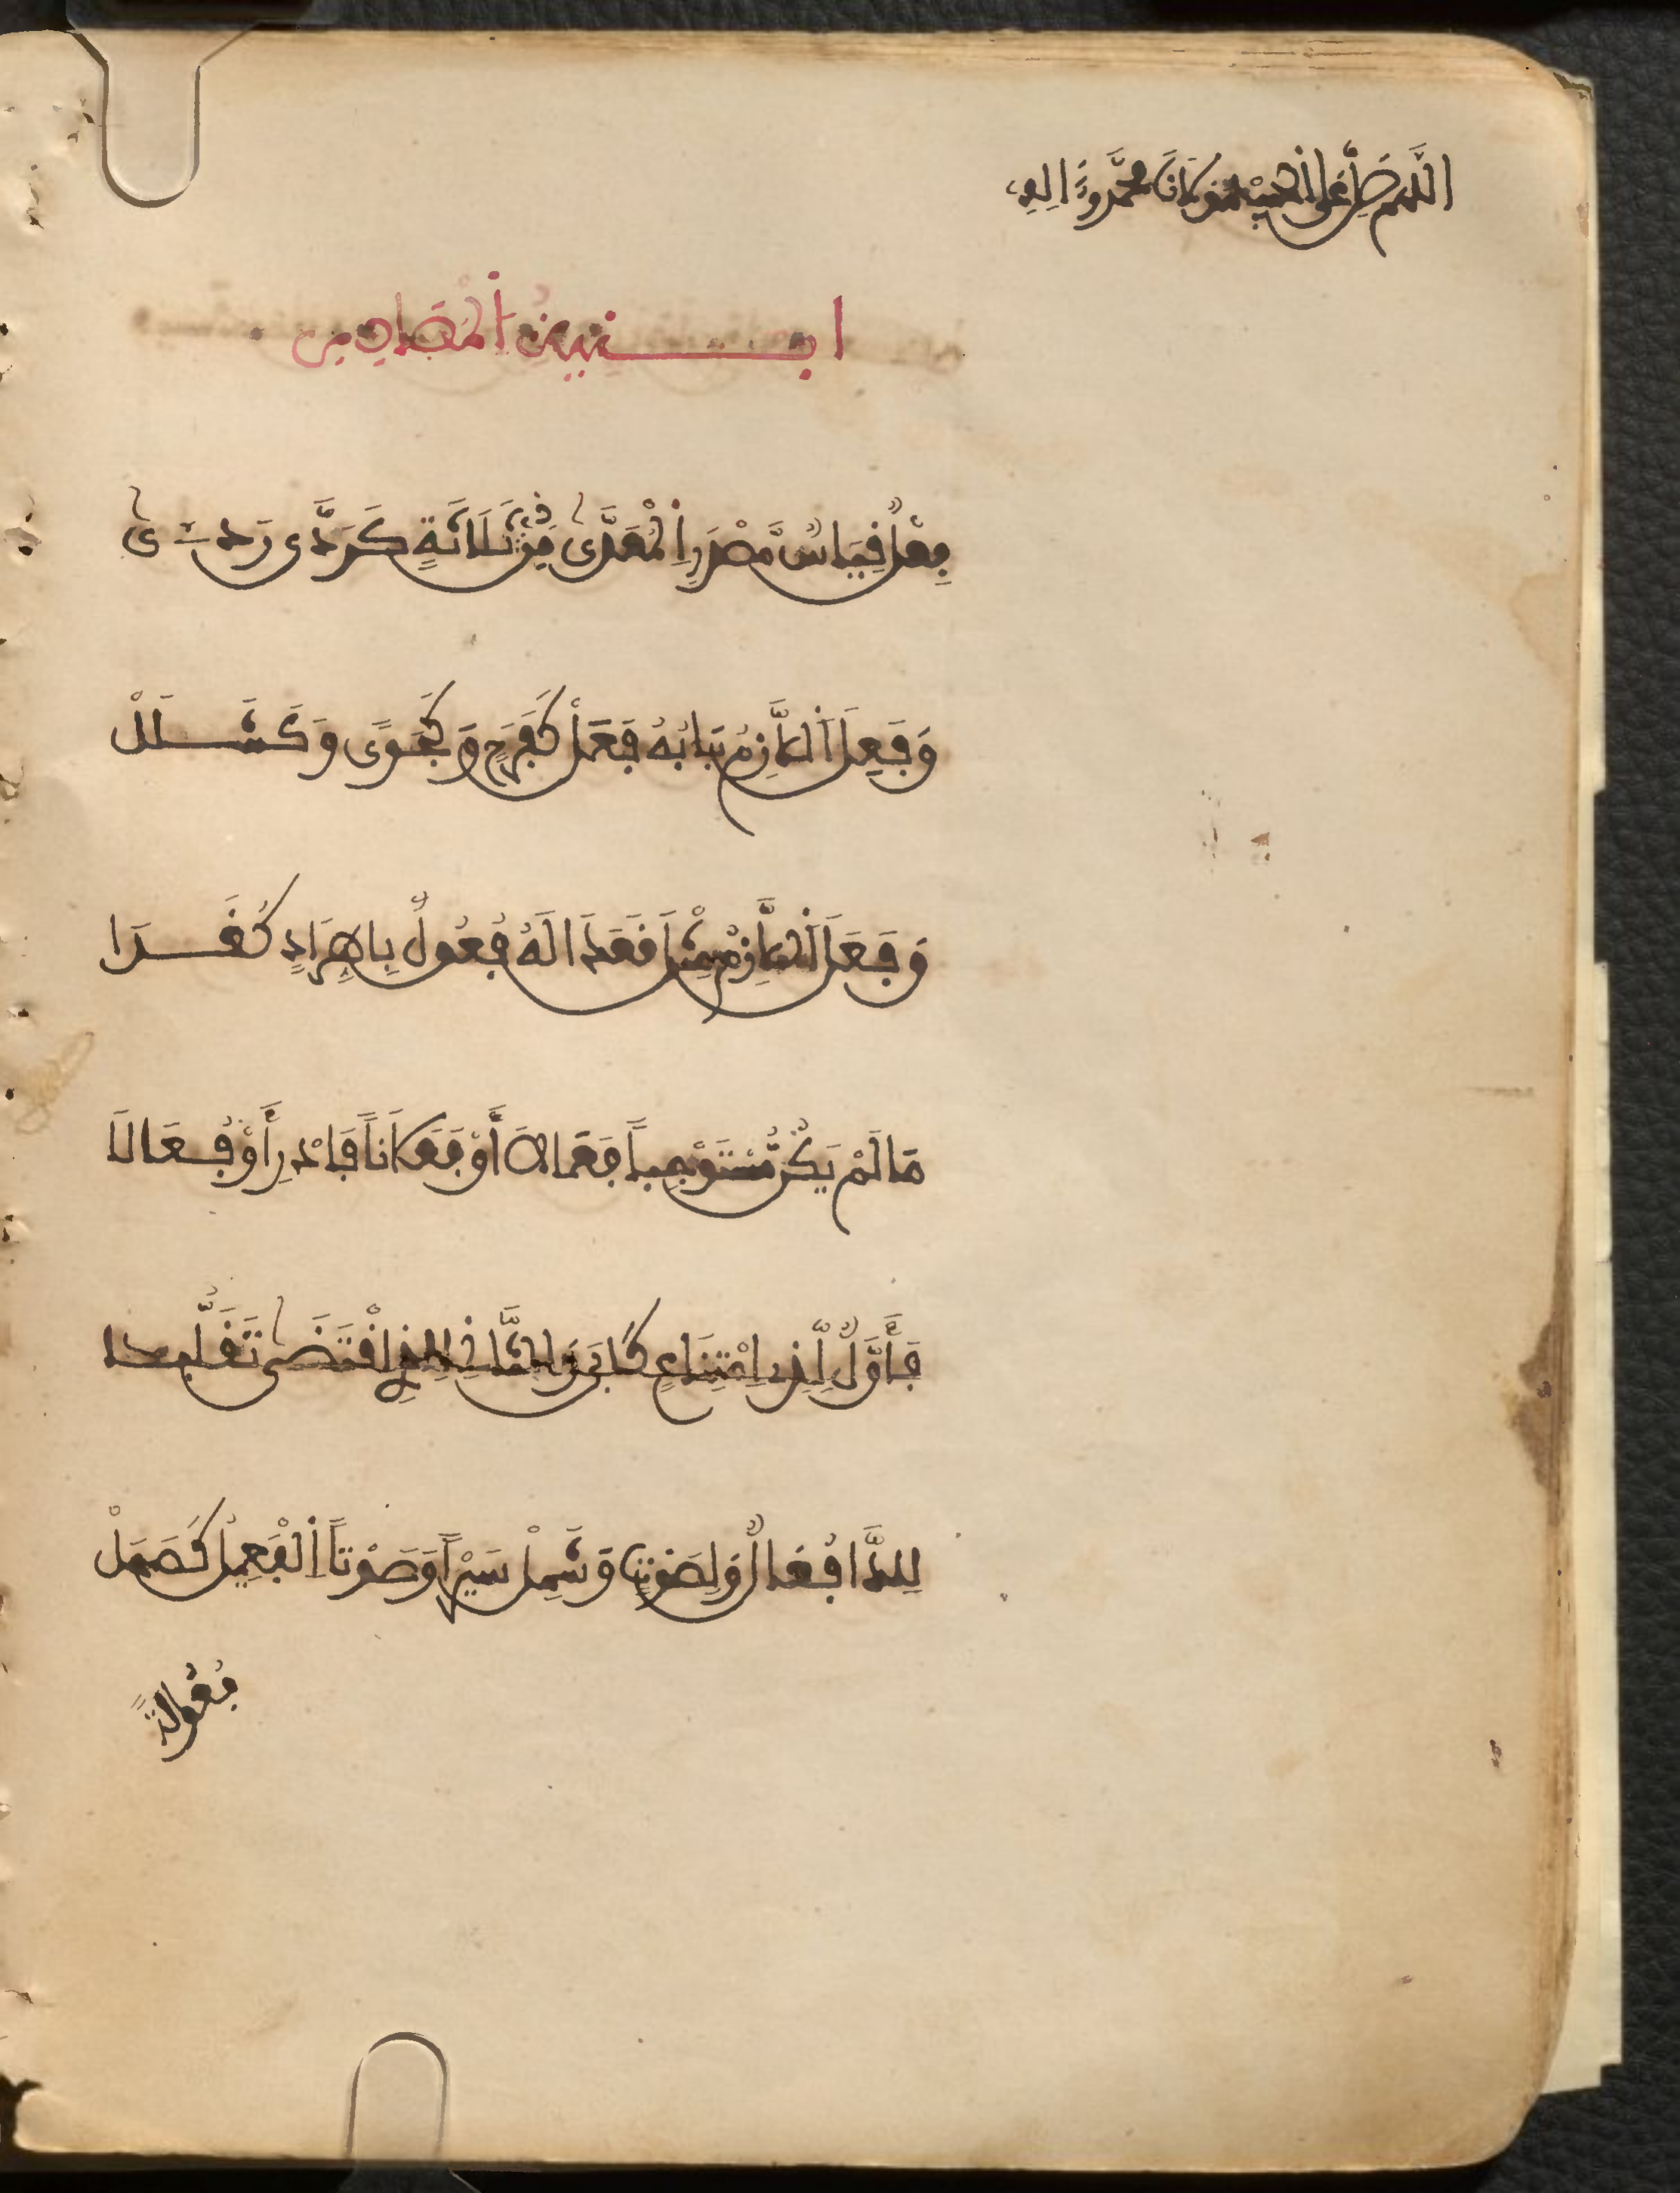 اللهم صل على سيدنا ومولانا محمد وءاله
ابنية المصادر
فَعْلٌ قِيَاسُ مَصْدَرِ الْمُعَدَّى مِن ذِي ثَلَاثَةٍ كَرَدَّ رَدَّى
وَفَعِلَ اللَّازِمُ بَابُهُ فَعَلْ كَفَرَحٍ وَكَجَوًى وَكَشَلَلْ
وَفَعَلَ اللَّازِمُ مِثْلَ قَعَدَا لَهُ فُعُولٌ بِاطِّرَادٍ كَغَدَا
مَا لَمْ يَكُن مُّسْتَوْجِباً فِعَالَا أَوْ فَعَلَاناً فَادْرِ أَوْ فُعَالَا
فَأَوَّلٌ لِّذِي امْتِنَاعٍ كَأَبَى وَالثَّانِ لِلَّذِي اقْتَضَى تَقَلُّبَا
لِلدَّا فُعَالٌ وَلِصَوْتٍ وَشَمِلْ سَيْراً وَصَوْتاً الْفَعِيلُ كَصَهَلْ
فُعُولَةٌ